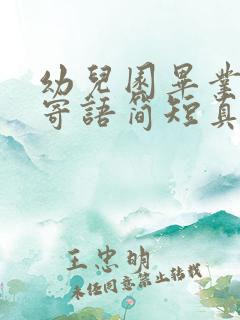 幼兒園畢業
寄語簡短真
王忠明
未经同意禁止转载